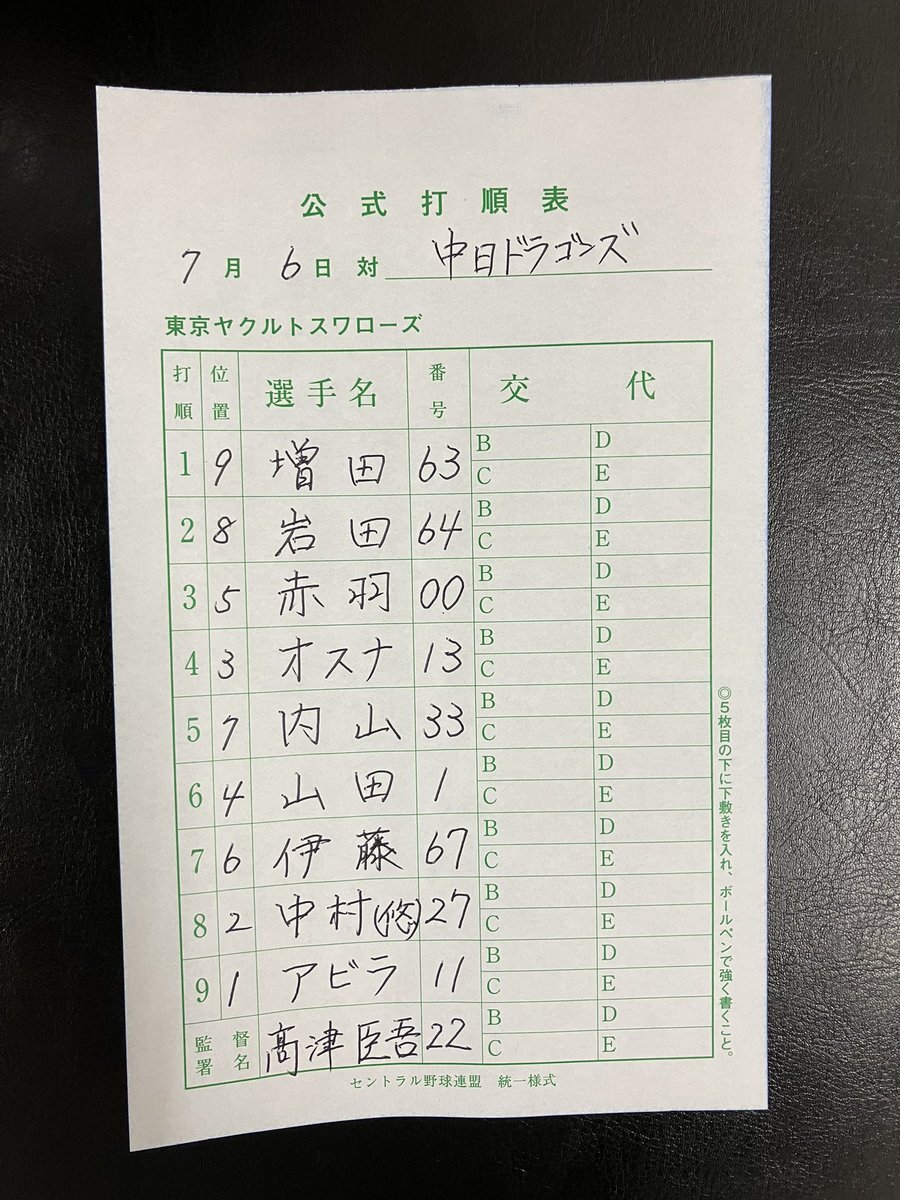 公式打順表
7月6日対 中日ドラゴンズ
東京ヤクルトスワローズ
打順 位置 選手名 番号 交代
1 9 増田 63 B D
C E
2 8 岩田 64 B D
C E
3 5 赤羽 00 B D
C E
4 3 オスナ 13 B D
C E
5 7 内山 33 B D
C E
6 4 山田 1 B D
C E
7 6 伊藤 67 B D
C E
8 2 中村(悠) 27 B D
C E
9 1 アビラ 11 B D
C E
監督署名 髙津臣吾 22 B D
C E
セントラル野球連盟 統一様式
◎5枚目の下に下敷きを入れ、ボールペンで強く書くこと。